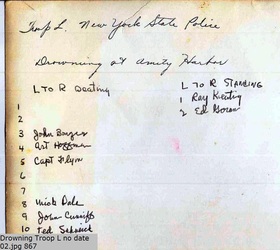 Troop L. New York State Police
Drowning at Amity Harbor
L to R Seating
L to R Standing
1 Ray Keating
2 Ed Doran
1
2
3 John Borges
4 Art Hoffman
5 Capt Flynn
6
7
8 Mick Dale
9 John
10 Ted
Drowning Troop L no date
02.jpg 867